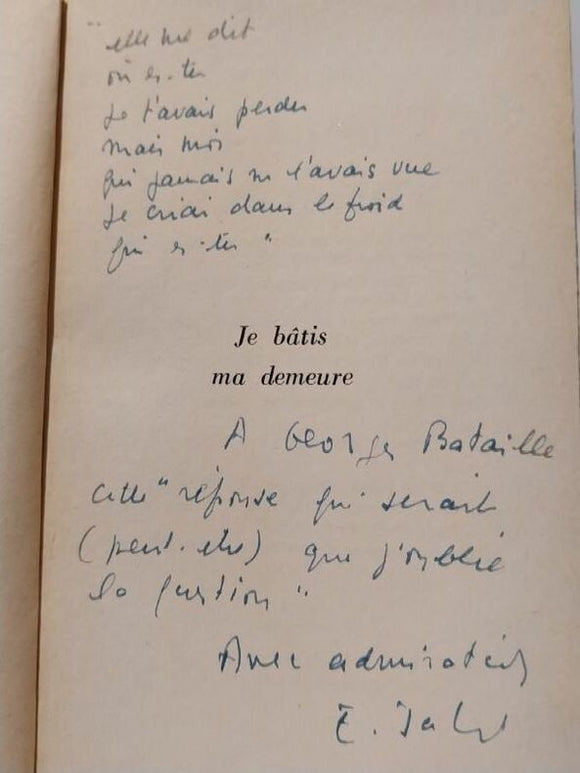 "elle me dit
où es-tu
je t'avais perdu
mais moi
qui jamais ne l'avais vue
je criai dans le froid
qui es-tu"
Je bâtis
ma demeure
A Georges Bataille
cette "réponse qui serait
(peut-être) que j'oublie
la question"
Avec admiration
E. Jabès